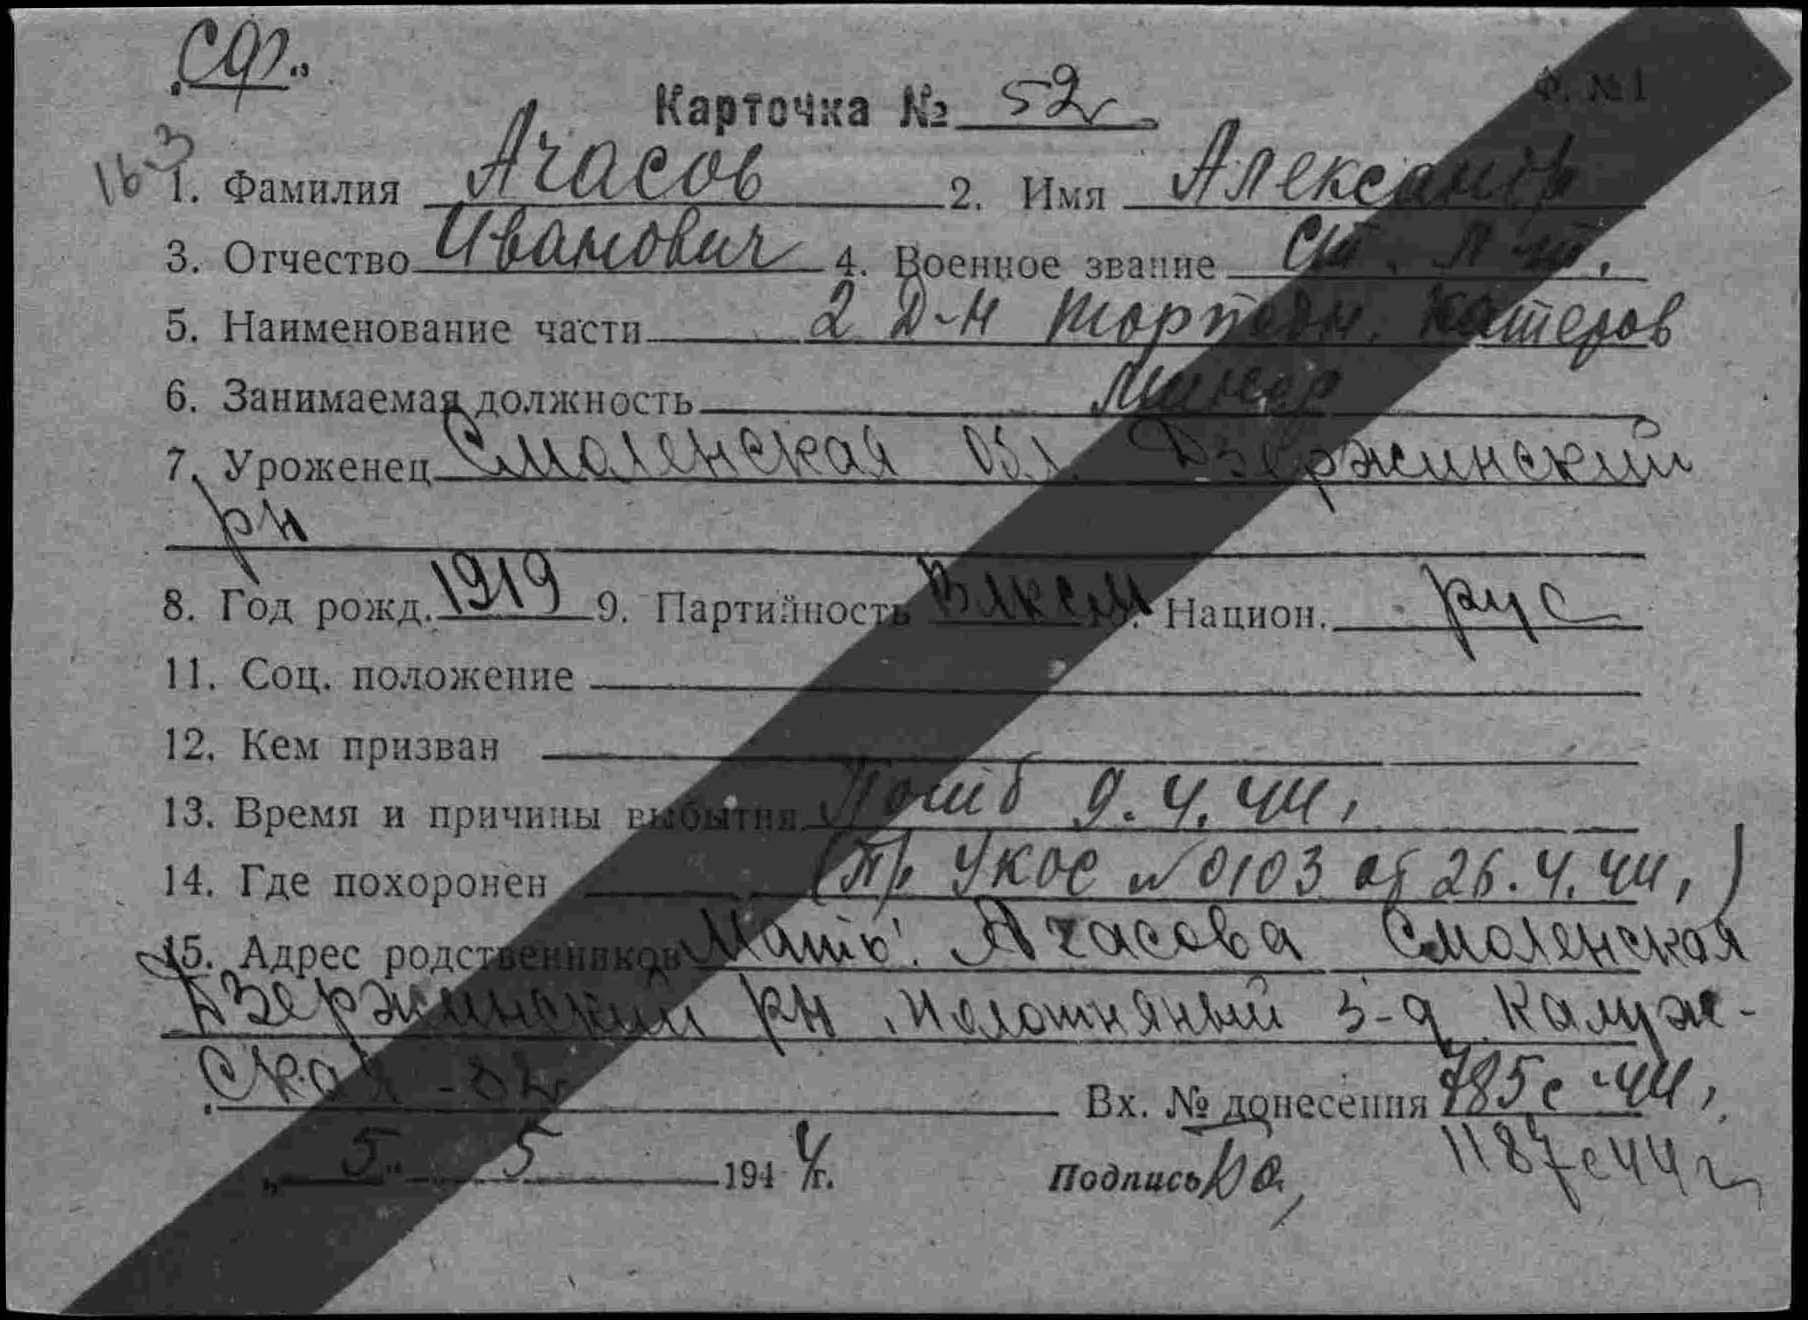 СФ.
Карточка № 52
Ф. №1
163
1. Фамилия Ачасов 2. Имя Александр
3. Отчество Иванович 4. Военное звание ст. л-т.
5. Наименование части 2 Д-н торпедн. катеров
6. Занимаемая должность Минер
7. Уроженец Смоленская обл. Дзержинский
рн
8. Год рожд. 1919 9. Партийность ВЛКСМ 10. Национ. рус
11. Соц. положение
12. Кем призван
13. Время и причины выбытия Погиб 9.4.44,
14. Где похоронен (пр УКОС №0103 от 26.4.44,)
15. Адрес родственников Мать: Ачасова Смоленская
Дзержинский рн, Полотняный з-д Калуж-
ская - 32
Вх. № донесения 785с-44,
1187с44г
„ 5 „ 5 1944г.
Подпись